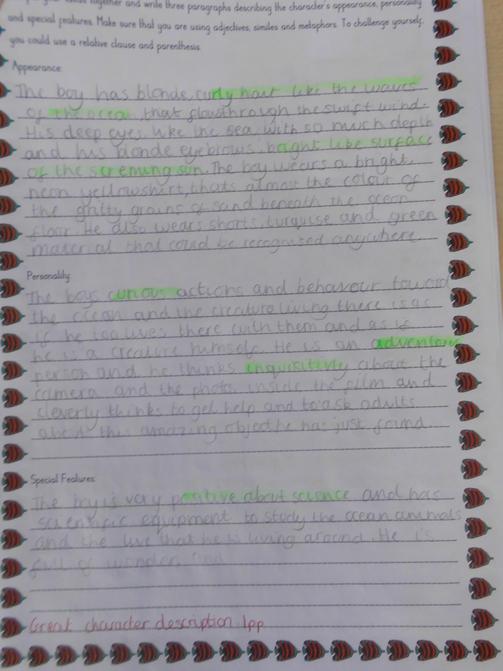 together and write three paragraphs describing the character's appearance, personality
and special features. Make sure that you are using adjectives, similes and metaphors. To challenge yourself,
you could use a relative clause and parenthesis.
Appearance:
The boy has blonde, curly hair like the waves
of the ocean that flow through the swift wind.
His deep eyes like the sea, with so much depth
and his blonde eyebrows, bright like surface
of the screming sun. The boy wears a bright,
neon yellow shirt, thats almost the colour of
the gritty grains of sand beneath the ocean
floor. He also wears shorts, turquise and green
material that could be recognized anywhere.
Personality:
The boys curious actions and behaviour toward
the ocean and the creature living there is as
if he too lives there with them and as is
he is a creature humself. He is an adventurous
person and he thinks inquisitively about the
camera and the photo inside the film and
cleverly thinks to get help and to ask adults
about this amazing object he has just found.
Special Features:
The boy is very positive about science and has
scientific equipment to study the ocean animals
and the live that he is living around. He is
full of wonder and
Great character description 1pp